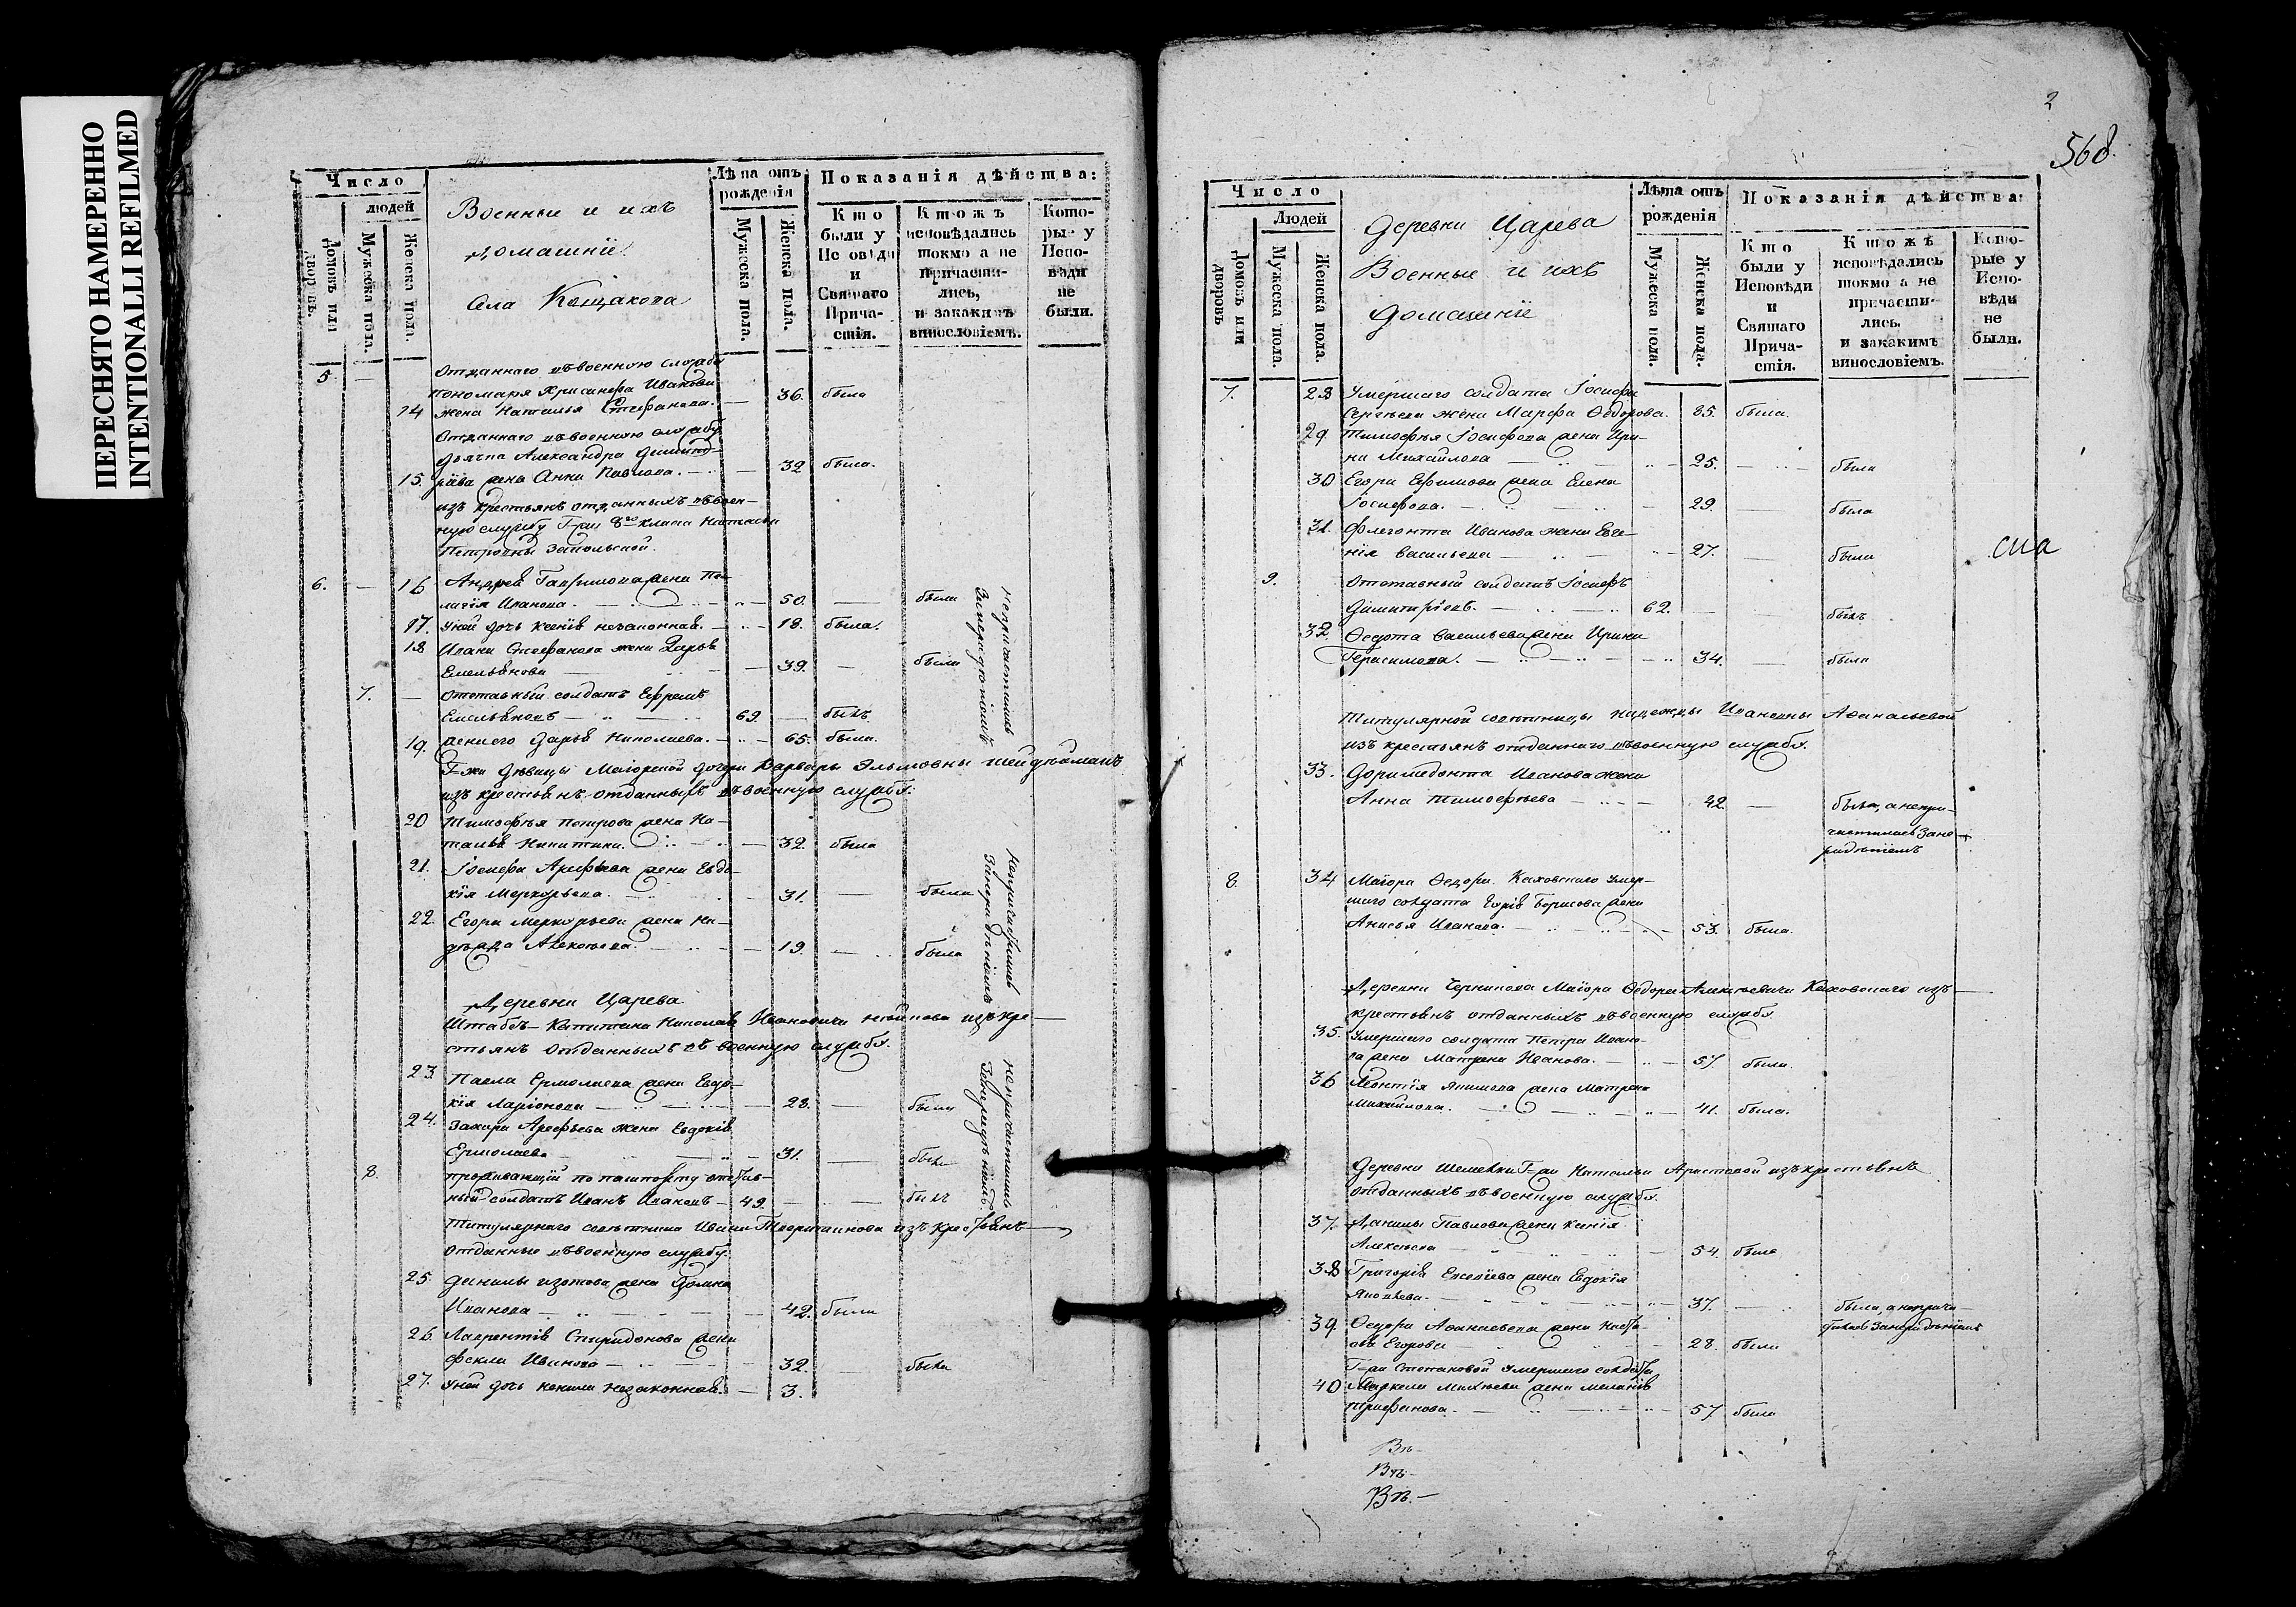 ПЕРЕСНЯТО НАМЕРЕННО
INTENTIONALLI REFILMED
Число
людей
Домовъ или дворовъ.
Мужеска пола.
Женска пола.
Военные и ихъ
домашніи
села Кощакова
Лѣта отъ
рожденія
Мужеска пола.
Женска пола.
Показанія дѣйства:
Кто
были у
Исповѣди
и
Святаго
Прича-
стія.
Ктожъ
исповѣдались
токмо а не
причасти-
лись,
и закакимъ
винословіемъ.
Кото-
рые у
Испо-
вѣди
не
были.
5. — отданнаго въ военную службу
пономаря Хрисанфа Иванова
14 жена Наталья Стефанова. — 36. была
Отданнаго въ военную службу
дьячка Александра Димит-
15. ріева жена Анна Павлова. — 32 была.
изъ крестьянъ отданныхъ въ воен-
ную службу Г-жи 8го класса Натальи
Петровны Запольской.
6. — 16 Андрея Гаврилова жена Пе-
лагія Иванова. — 50. — была
17. Уней дочь Ксенія незаконная. — 18. была.
18 Ивана Стефанова жена Дарья
Емельянова — 39. — была
непричастилась
Занерадѣніемъ
7. — отставный солдатъ Ефремъ
Емельяновъ — 69. — былъ
19. жена его Дарья Николаева. — 65. была.
Г-жи Дѣвицы Маіорской дочери Варвары
изъ крестьянъ отданныхъ въ военную службу.
20 Тимофея Петрова жена На-
талья Никитина. — 32. была
21. Іосифа Арефьева жена Евдо-
кія Меркурьева. — 31. — была
22. Егора Меркурьева жена На-
дежда Алексѣева. — 19. — была
непричастилась
Занерадѣніемъ
Деревни Царева
Штабсъ-Капитана Николая Ивановича изъ кре-
стьянъ отданныхъ въ военную службу.
23. Павла Ермолаева жена Евдо-
кія Ларіонова — 28. — была
24. Захара Арефьева жена Евдокія
Ермолаева — 31. — была
непричастились
Занерадѣніемъ
8. проживающій по пашпорту отстав-
ный солдатъ Иванъ Ивановъ — 49. — былъ
Титулярнаго совѣтника Ивана изъ крестьянъ
отданные въ военную службу.
25. Данилы Изотова жена Домна
Иванова — 42. была
26. Лаврентія Спиридонова жена
Фекла Иванова — 32. была
27. Уней дочь незаконная. — 3.
2
568.
Число
Людей
Домовъ или дворовъ
Мужеска пола.
Женска пола.
Деревни Царева
Военные и ихъ
Домашніи
Лѣта отъ
рожденія
Мужеска пола.
Женска пола.
Показанія дѣйства:
Кто
были у
Исповѣди
и
Святаго
Прича-
стія.
Ктожъ
исповѣдались
токмо а не
причасти-
лись.
и закакимъ
винословіемъ.
Кото-
рые у
Испо-
вѣди
не
были.
7. 28 Умершаго солдата Іосифа
Сергѣева жена Марфа Ѳедорова. 85. была.
29 Тимофея Іосифова жена Ири-
на Михайлова — 25. — была
30 Егора Ефимова жена Елена
Іосифова. — 29. — была
31. Флегонта Иванова жена Евге-
нія Васильева — 27. — была
9. Отставный солдатъ Іосифъ
Димитріевъ. — 62. — былъ
32. Ѳедота Васильева жена Ирина
Герасимова. — 34. — была
Титулярной совѣтницы Надежды Ивановны Аѳанасьевой
изъ крестьянъ отданнаго въ военную службу.
33. Доримедонта Иванова жена
Анна Тимофѣева — 42 — была, а непри-
частилась Зане-
радѣніемъ
8. 34 Маіора Ѳедора Каховскаго умер-
шаго солдата Борисова жена
Анисья Иванова. — 53. была.
Деревни Маіора Ѳедора Алексѣевича Каховскаго изъ
крестьянъ отданныхъ въ военную службу.
35. Умершаго солдата Петра Ивано-
ва жена Матрена Иванова. — 57. была.
36 Леонтія Акимова жена Матрена
Михайлова. — 41. была.
Деревни Г-жи Натальи Аристовой изъ крестьянъ
отданныхъ въ военную службу.
37. Данилы Павлова жена Ксенія
Алексѣева — 54. была
38 Григорія Елисѣева жена Евдокія
Яковлева. — 37. — была, а неприча-
стилась Занерадѣніемъ
39 Ѳедора Аѳанасьева жена Наста-
сья Егорова — 28. была
Г-жи умершаго солдата
40 Маркела жена Меланія
Трифанова. — 57 была
Въ-
Въ-
Въ.-